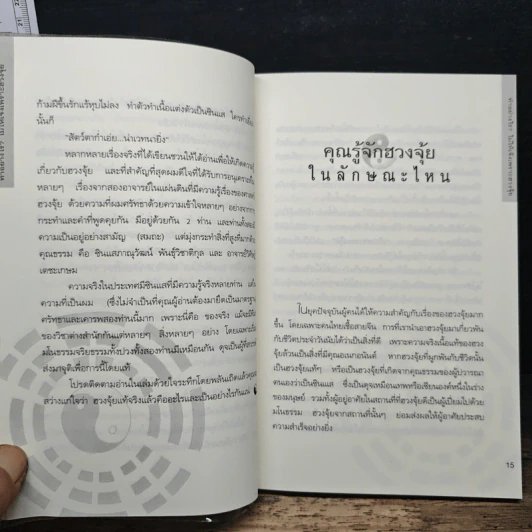 ก้ามมีขึ้นรักแร้ทุบไม่ลง ทำตัวทำเนื้อแต่งตัวเป็นซินแส ใครทำเยี่ยง
นั้นก็
"สัตว์ตากำเอ่ย...น่าเวทนายิ่ง"
หลากหลายเรื่องจริงที่ได้เขียนชวนให้ได้อ่านเพื่อให้เกิดความรู้
เกี่ยวกับฮวงจุ้ย และที่สำคัญที่สุดผมดีใจที่ได้รับการอนุเคราะห์ใน
หลายๆ เรื่องจากสองอาจารย์ในแผ่นดินที่มีความรู้เรื่องของศาสตร์
ฮวงจุ้ย ด้วยความที่ผมศรัทธาด้วยความเข้าใจหลายๆ อย่างจากการ
กระทำและคำที่พูดคุยกัน มีอยู่ด้วยกัน 2 ท่าน และท่านทั้งสอง
ความเป็นอยู่อย่างสามัญ (สมถะ) แต่มุ่งกระทำสิ่งที่สูงที่มากด้วย
คุณธรรม คือ ซินแสภาณุวัฒน์ พันธุ์วิชาติกุล และ อาจารย์
เตชะเกษม
ความจริงในประเทศมีซินแสที่มีความรู้จริงหลายท่าน แต่
ความที่เป็นผม (ซึ่งไม่จำเป็นที่คุณผู้อ่านต้องมายึดเป็นมาตรฐาน)
ศรัทธาและเคารพสองท่านนี้มาก เพราะนี่คือ ของจริง แม้จะมีข้อ
ของวิชาต่างสำนักกันแต่หลายๆ สิ่งหลายๆ อย่าง โดยเฉพาะ
มโนธรรมจริยธรรมทั้งปวงทั้งสองท่านมีเหมือนกัน ดุจเป็นผู้ที่สวรรค์
ส่งมาจุติเพื่อการนี้โดยแท้
โปรดติดตามอ่านในเล่มด้วยใจระทึกโดยพลันเกิดแล้วคุณจะ
สว่างแก่ใจว่า ฮวงจุ้ยแท้จริงแล้วคืออะไรและเป็นอย่างไรกันแน่
คุณรู้จักฮวงจุ้ย
ในลักษณะไหน
ในยุคปัจจุบันผู้คนได้ให้ความสำคัญกับเรื่องของฮวงจุ้ยมาก
ขึ้น โดยเฉพาะคนไทยเชื้อสายจีน การที่เรานำเอาฮวงจุ้ยมาเกี่ยวพัน
กับชีวิตประจำวันนับได้ว่าเป็นสิ่งที่ดี เพราะความจริงเนื้อแท้ของฮวง
จุ้ยล้วนเป็นสิ่งที่มีคุณอเนกอนันต์ หากฮวงจุ้ยที่ผูกพันกับชีวิตนั้น
เป็นฮวงจุ้ยแท้ๆ หรือเป็นฮวงจุ้ยที่เกิดจากคุณธรรมของผู้ปวารณา
ตนเองว่าเป็นซินแส ซึ่งเป็นดุจเหมือนเทพหรือเซียนองค์หนึ่งในร่าง
ของมนุษย์ รวมทั้งผู้อยู่อาศัยในสถานที่ที่ฮวงจุ้ยดีเป็นผู้เปี่ยมไปด้วย
มโนธรรม ฮวงจุ้ยจากสถานที่นั้นๆ ย่อมส่งผลให้ผู้อาศัยประสบ
ความสำเร็จอย่างยิ่ง
15